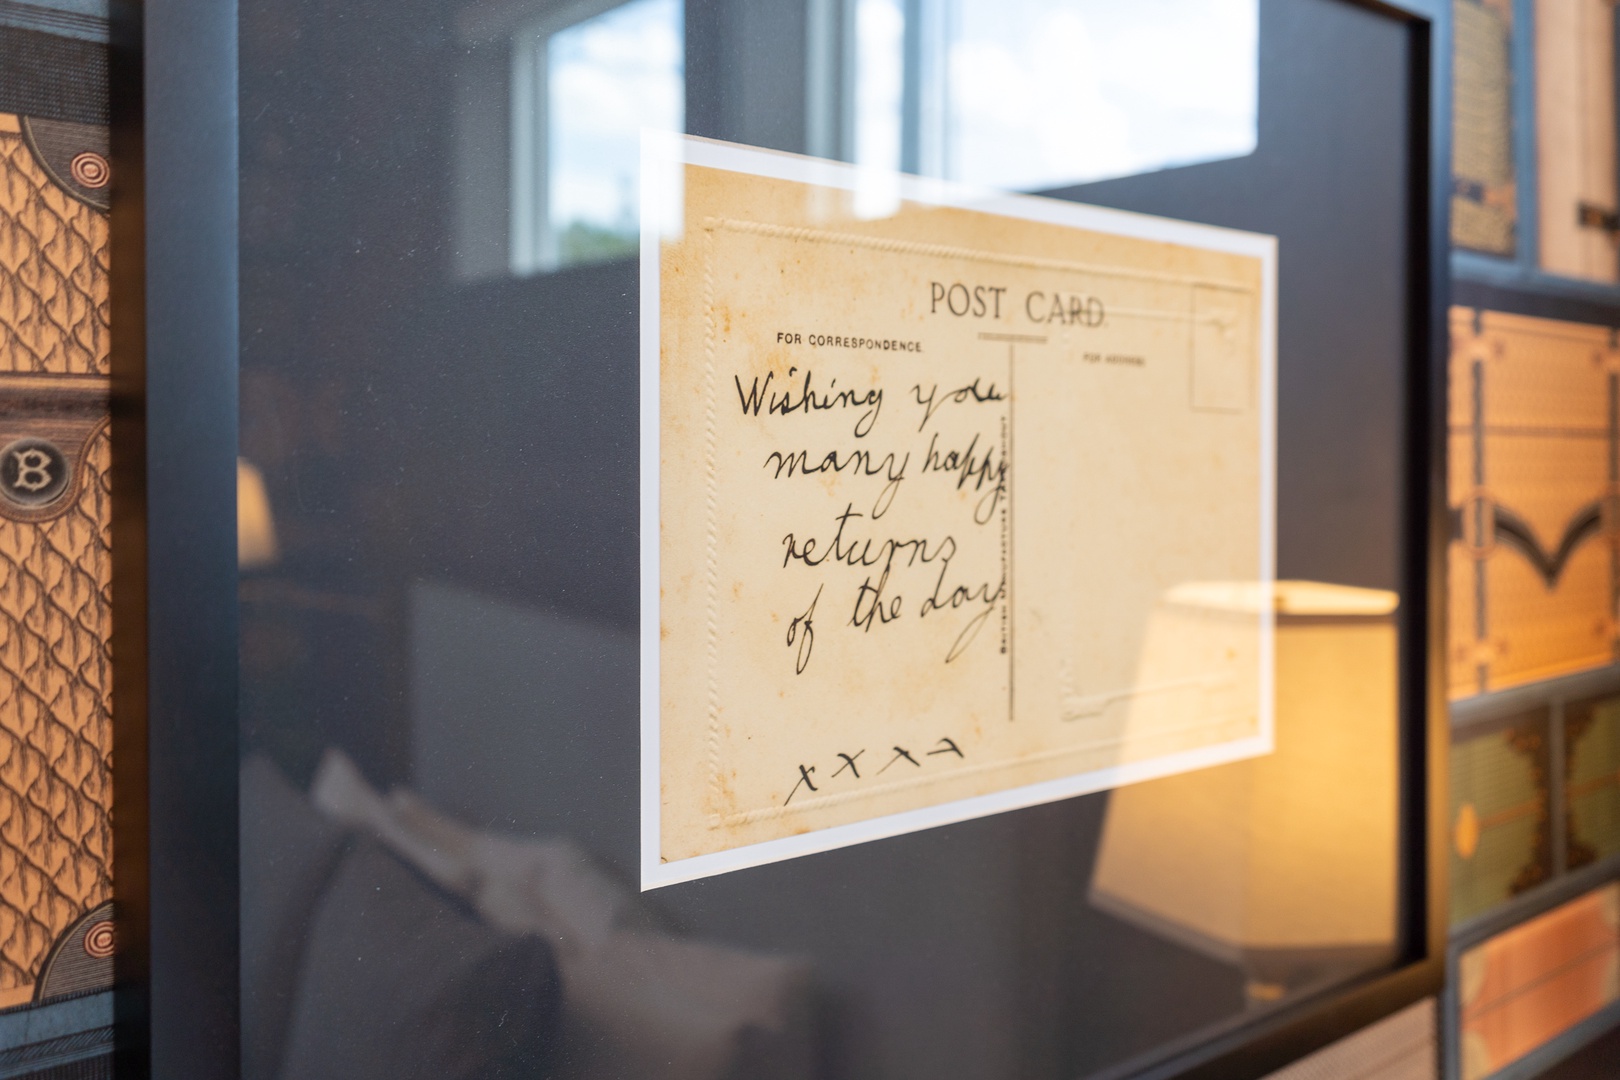 POST CARD
FOR CORRESPONDENCE
FOR ADDRESS
Wishing you
many happy
returns
of the day
x x x x
BRITISH MANUFACTURE THROUGHOUT
B